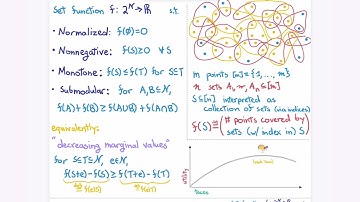 Set function f: 2^N → ℝ s.t.
• Normalized: f(∅)=0
• Nonnegative: f(S)≥0 ∀S
• Monotone: f(S)≤f(T) for S⊆T
• Submodular: for A,B⊆N,
f(A)+f(B)≥f(A∪B)+f(A∩B)
equivalently:
"decreasing marginal values"
for S⊆T⊆N, e∈N,
f(S+e)-f(S) ≥ f(T+e)-f(T)
m points [m]={1, ..., m}
n sets A₁, ..., Aₙ⊆[m]
S⊆[n] interpreted as
collection of sets (via indices)
f(S) = (# points covered by
sets (w/ index in) S)
utility